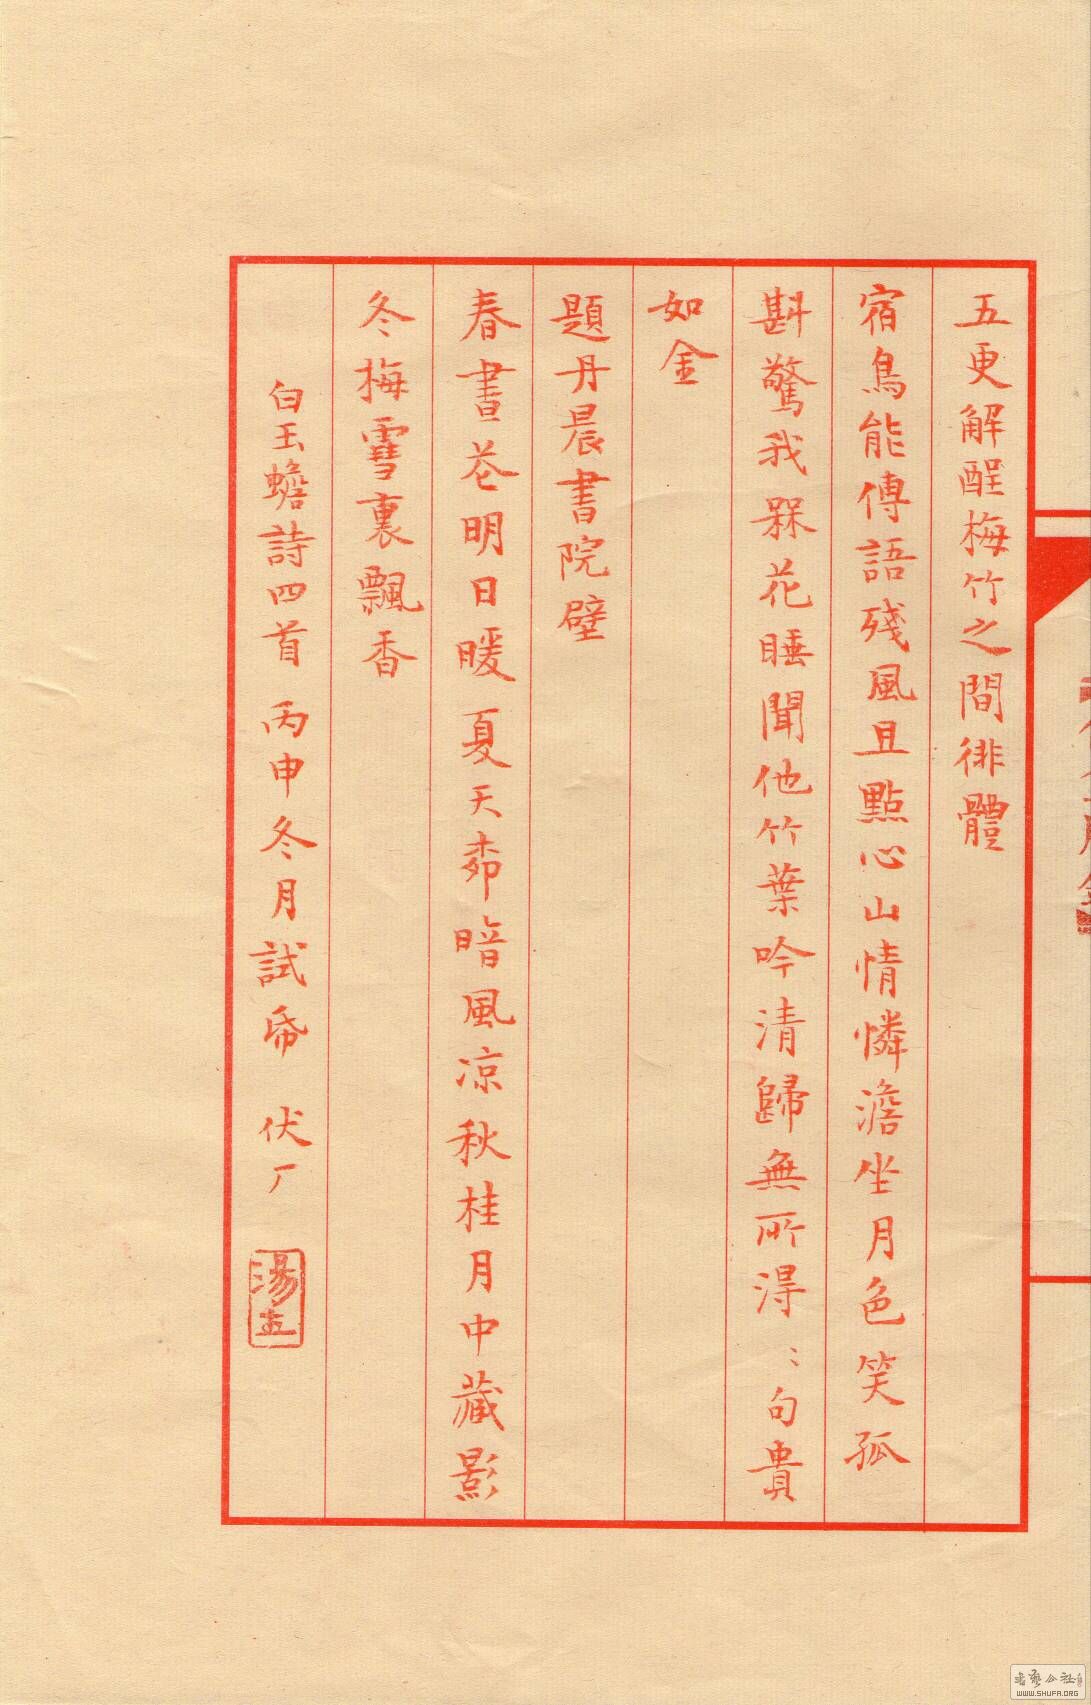 五更解酲梅竹之間徘體
宿鳥能傳語殘風且點心山情憐澹坐月色笑孤
斟驚我槑花睡聞他竹葉吟清歸無所淂〻句貴
如金
題丹晨書院壁
春書苍明日暖夏天桼暗風凉秋桂月中藏影
冬梅雪裏飄香
白玉蟾詩四首 丙申冬月試帋 伏厂
湯
書藝公社
WWW.SHUFA.ORG